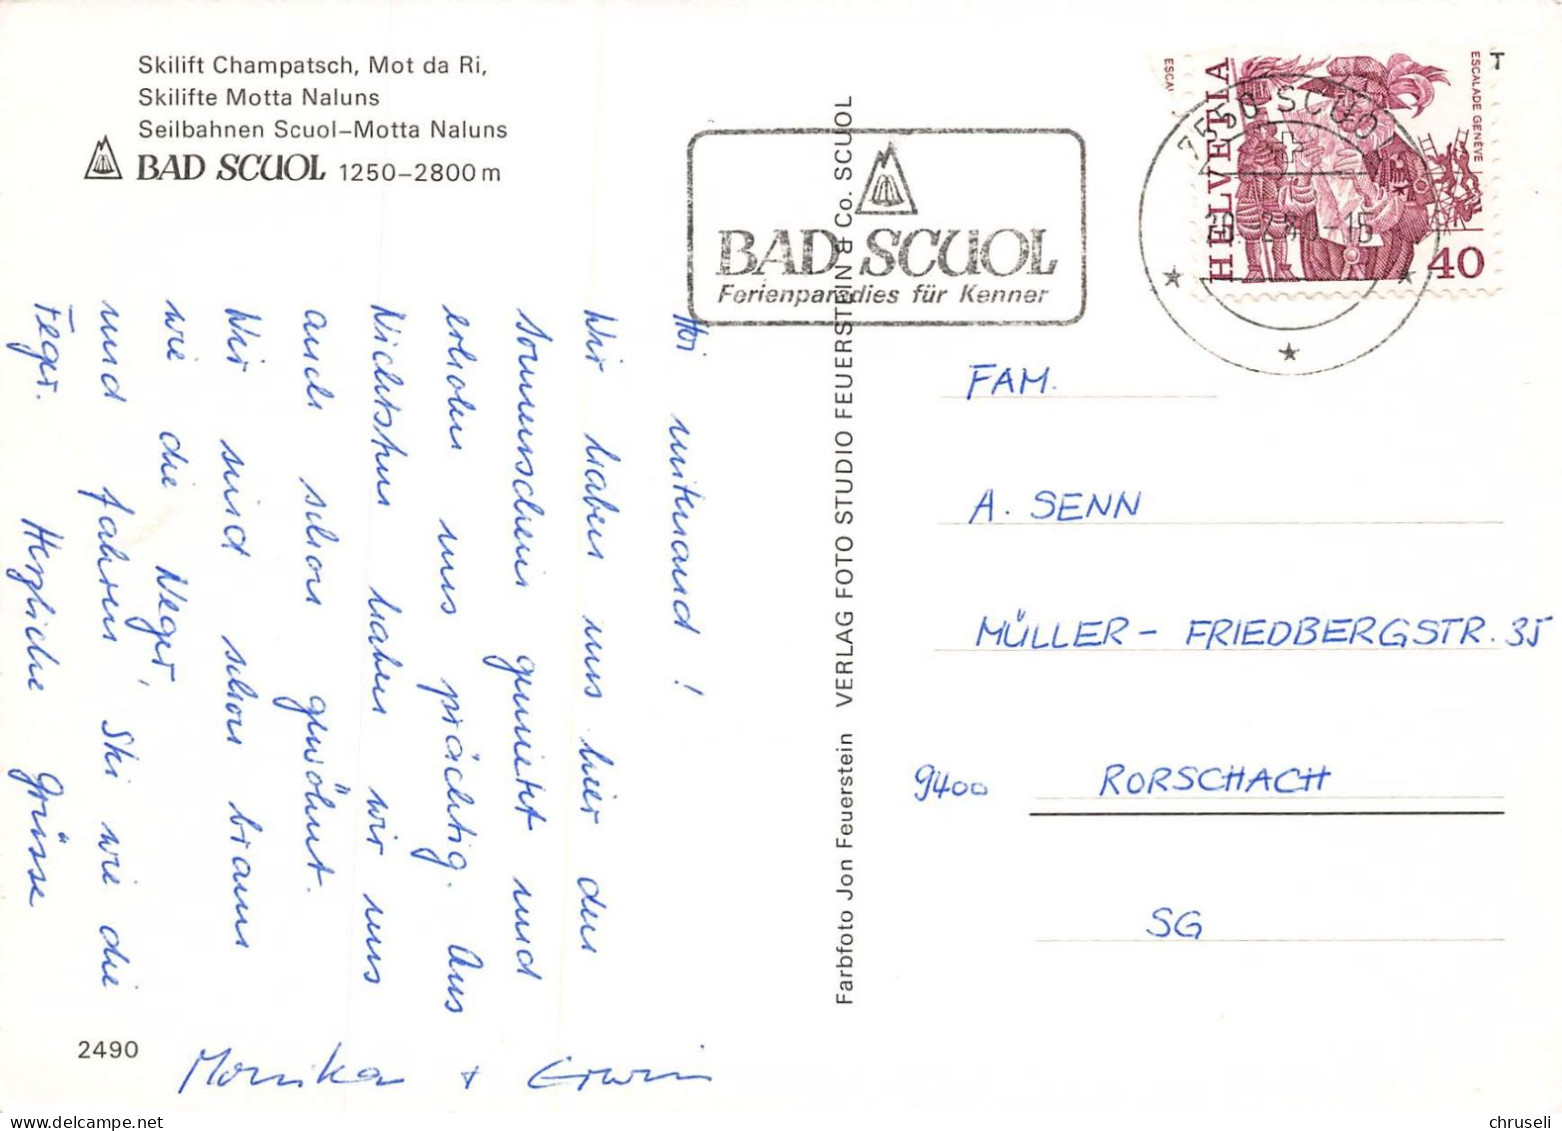 Skilift Champatsch, Mot da Ri,
Skilifte Motta Naluns
Seilbahnen Scuol–Motta Naluns
BAD SCUOL 1250–2800 m
Hoi mitenand!
Wir haben uns hier den
Sonnenschein gemietet und
erholen uns prächtig. Ans
Nichtstun haben wir uns
auch schon gewöhnt.
Wir sind schon braun
wie die Neger,
und fahren Ski wie die
Feger. Herzliche Grüsse
Monika + Erwin
2490
Farbfoto Jon Feuerstein VERLAG FOTO STUDIO FEUERSTEIN & Co. SCUOL
BAD SCUOL
Ferienparadies für Kenner
7550 SCUOL
-15
HELVETIA
ESCALADE GENÈVE
40
ESCA
T
FAM.
A. SENN
MÜLLER-FRIEDBERGSTR. 35
9400 RORSCHACH
SG
chruseli